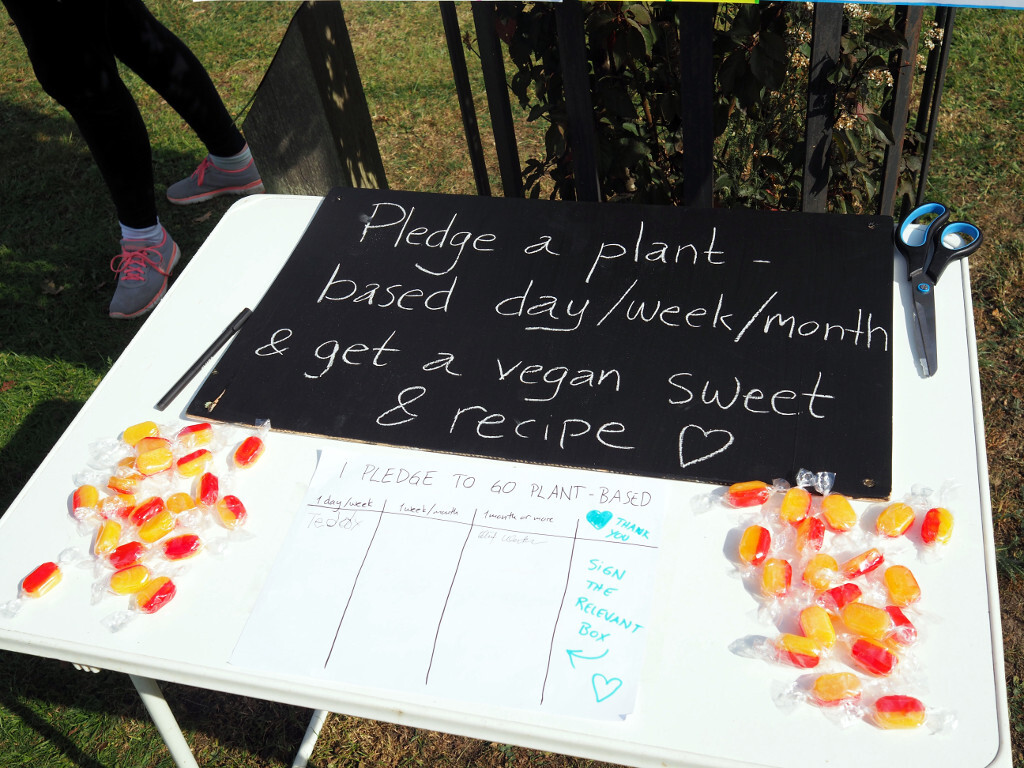 Pledge a plant -
based day/week/month
& get a vegan sweet
& recipe ♡
I PLEDGE TO GO PLANT-BASED
1 day/week
1 week/month
1 month or more
THANK
YOU
Teddy
SIGN
THE
RELEVANT
BOX